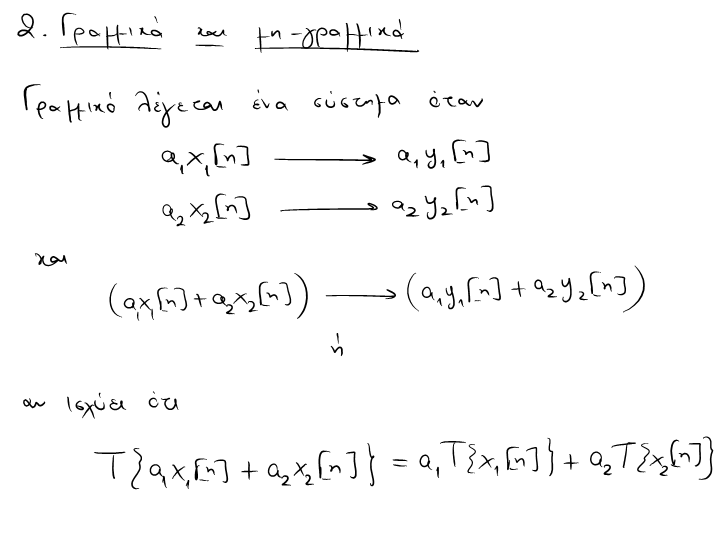 2. Γραμμικά και μη-γραμμικά
Γραμμικό λέγεται ένα σύστημα όταν
a₁x₁[n] ⟶ a₁y₁[n]
a₂x₂[n] ⟶ a₂y₂[n]
και
(a₁x₁[n] + a₂x₂[n]) ⟶ (a₁y₁[n] + a₂y₂[n])
ή
αν ισχύει ότι
T{a₁x₁[n] + a₂x₂[n]} = a₁T{x₁[n]} + a₂T{x₂[n]}